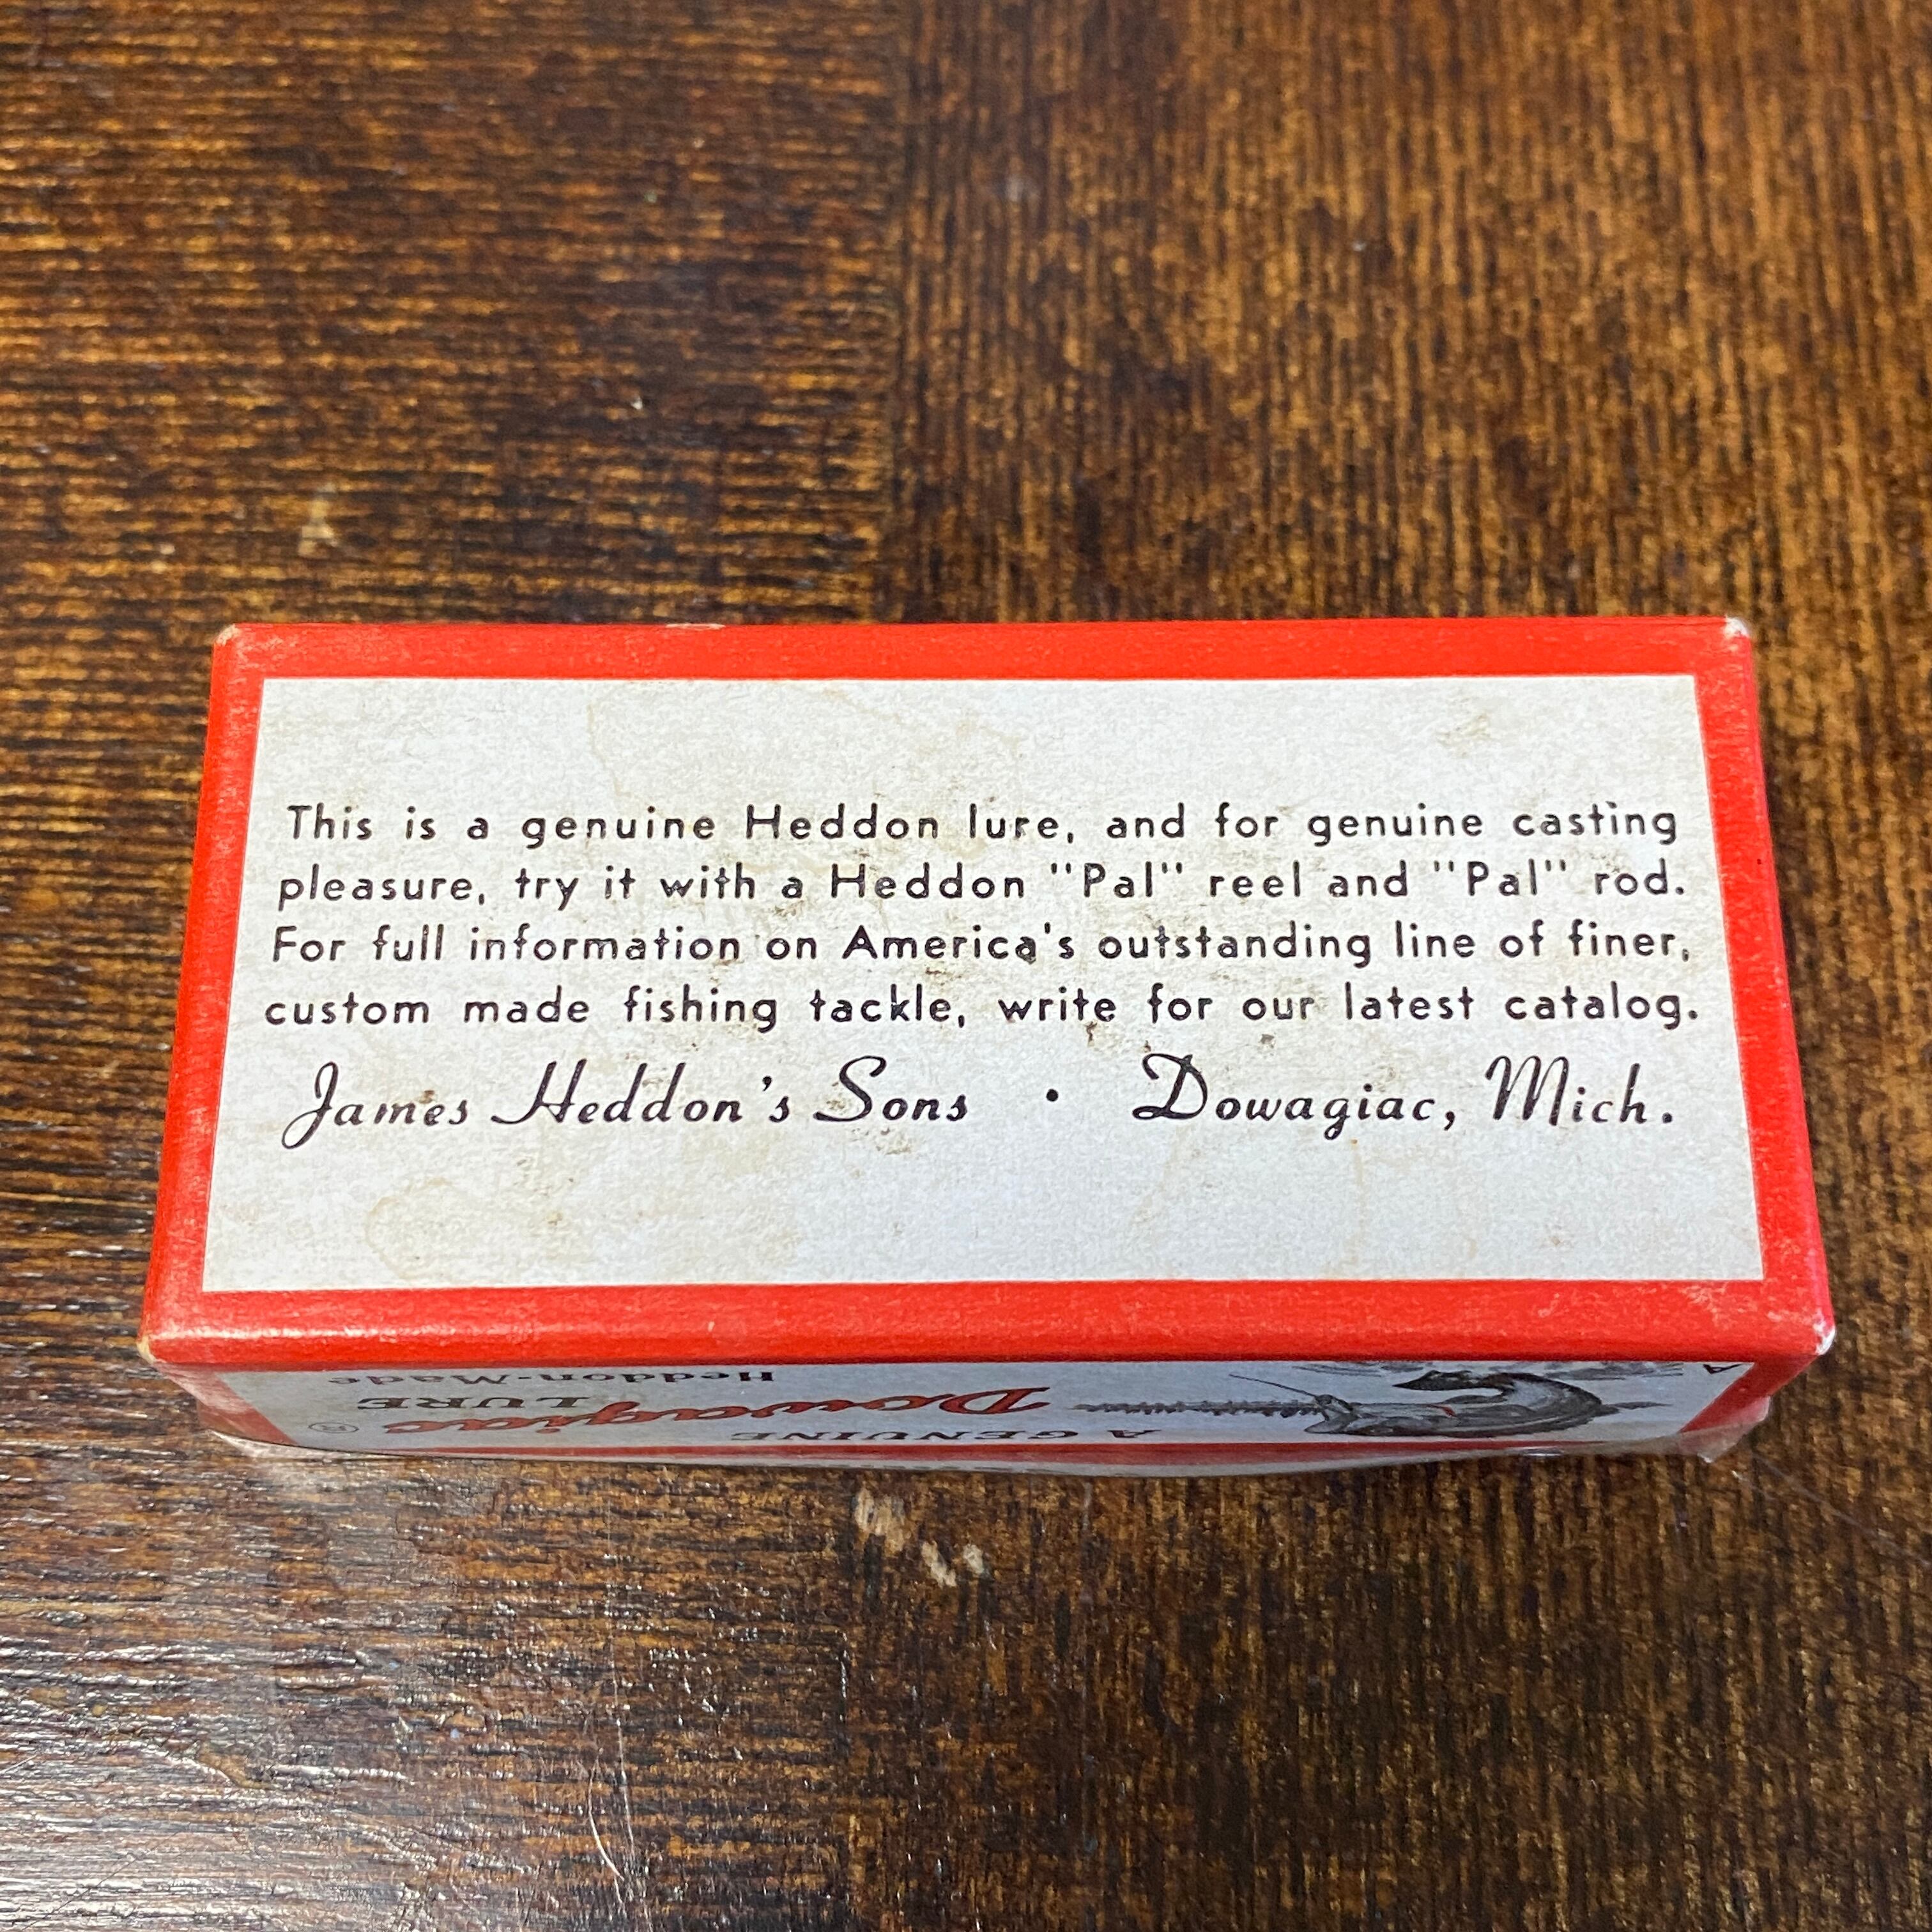 This is a genuine Heddon lure, and for genuine casting
pleasure, try it with a Heddon "Pal" reel and "Pal" rod.
For full information on America's outstanding line of finer,
custom made fishing tackle, write for our latest catalog.
James Heddon's Sons • Dowagiac, Mich.
A GENUINE
Dowagiac ®
LURE
Heddon-Made
A